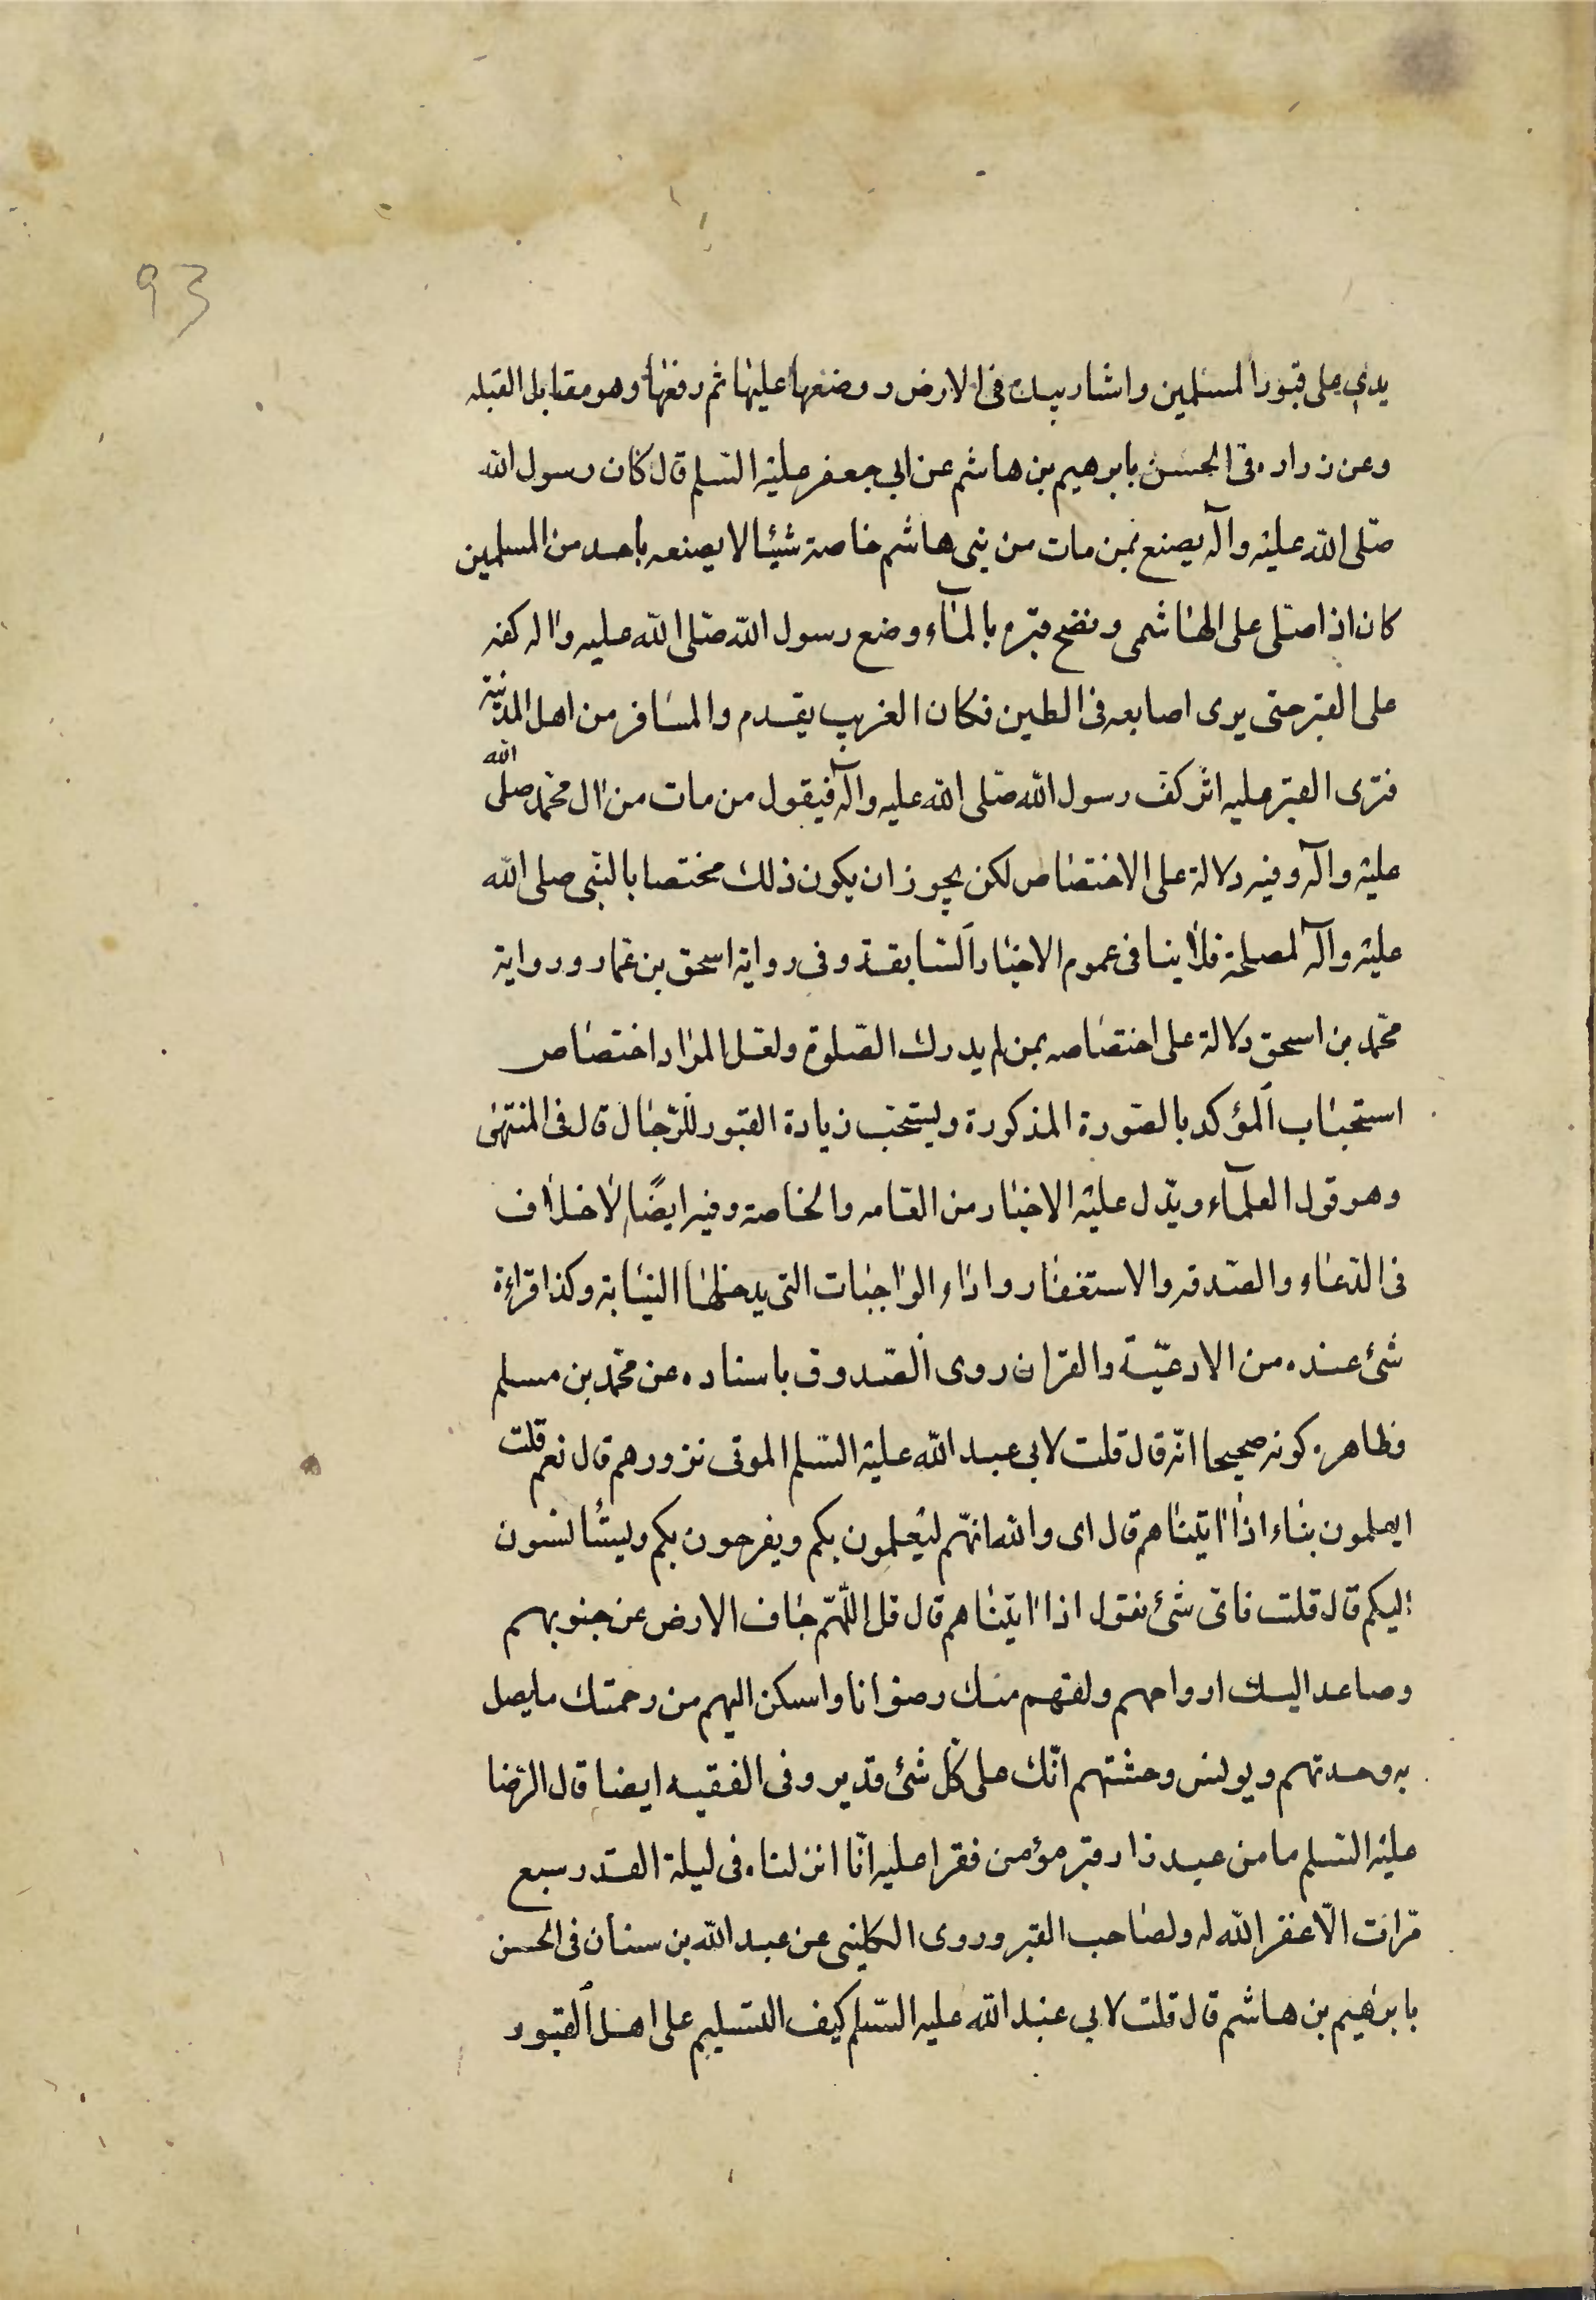 93
يدي على قبور المسلمين واشار بيده فى الارض ووضعها عليها ثم رفعها وهو مقابل القبله
وعن زراره فى الحسن بابرهيم بن هاشم عن ابي جعفر عليه السّلم قال كان رسول الله
صّلى الله عليه وآله يصنع بمن مات من بني هاشم خاصة شيئا لا يصنعه باحد من المسلمين
كان اذا صّلى على الهاشمى ونضح قبره بالمآء وضع رسول الله صّلى الله عليه واله كفه
على القبر حتى يرى اصابعه فى الطين فكان الغريب يقدم والمسافر من اهل المدينة
فترى القبر عليه اثر كف رسول الله صّلى الله عليه وآله فيقول من مات من ال محمّد صلى الله
عليه وآله وفيه دلالة على الاختصاص لكن يجوز ان يكون ذلك مختصا بالنّبى صلى الله
عليه وآله لمصلحة فلا ينافى عموم الاخبار السّابقة وفى رواية اسحق بن عمّار ورواية
محمّد بن اسحق دلالة على اختصاصه بمن لم يدرك الصّلوة ولعل المراد اختصاص
استحباب المؤكد بالصّورة المذكورة ويستحّب زيارة القبور للرّجال قال فى المنتهى
وهو قول العلمآء ويّدل عليه الاخبار من العّامه والخاصة وفيه ايضًا لا خلاف
فى الدّعاء والصّدقه والاستغفار واداء الواجبات التى يدخلها النيابة وكذا قراءة
شئ عنده من الادعيّة والقران روى الصّدوق باسناده عن محمّد بن مسلم
وظاهره كونه صحيحا انّه قال قلت لابى عبد الله عليه السّلم الموتى نزورهم قال نعم قلت
ايعلمون بناء اذا اتيناهم قال اى والله انهّم ليعلمون بكم ويفرحون بكم ويستأنسون
اليكم قال قلت فاىّ شئ نقول اذا اتيناهم قال قل اللّهمّ جاف الارض عن جنوبهم
وصاعد اليك ارواحهم ولقهم منك رضوانا واسكن اليهم من رحمتك ما يصل
به وحدتهم ويونس وحشتهم انّك على كّل شئ قدير وفى الفقيه ايضا قال الرّضا
عليه السّلم ما من عبد زار قبر مؤمن فقرا عليه انّا انزلناه فى ليلة القدر سبع
مّرات الّا غفر الله له ولصاحب القبر وروى الكلينى عن عبد الله بن سنان فى الحسن
بابرهيم بن هاشم قال قلت لابي عبد الله عليه السّلم كيف التسليم على اهل القبور